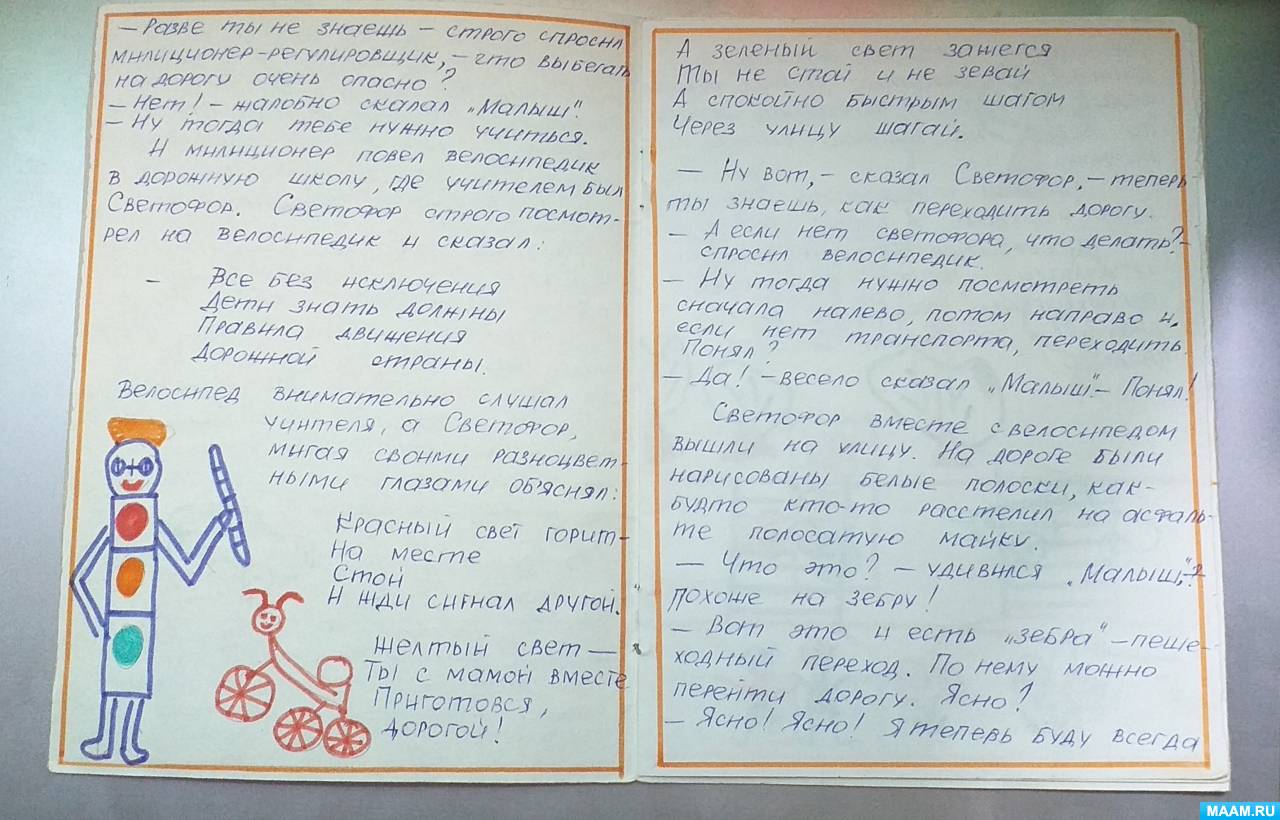 — Разве ты не знаешь – строго спросил
милиционер-регулировщик, – что выбегать
на дорогу очень опасно?
– Нет! – жалобно сказал „Малыш".
– Ну тогда тебе нужно учиться.
И милиционер повел велосипедик
в дорожную школу, где учителем был
Светофор. Светофор строго посмот-
рел на велосипедик и сказал:
– Все без исключения
Дети знать должны
Правила движения
Дорожной страны.
Велосипед внимательно слушал
учителя, а Светофор,
мигая своими разноцвет-
ными глазами объяснял:
Красный свет горит –
На месте
Стой
И жди сигнал другой.
Желтый свет —
Ты с мамой вместе
Приготовся,
дорогой!
А зеленый свет зажегся
Ты не стой и не зевай
А спокойно быстрым шагом
Через улицу шагай.
— Ну вот, – сказал Светофор, – теперь
ты знаешь, как переходить дорогу.
– А если нет светофора, что делать? –
спросил велосипедик.
– Ну тогда нужно посмотреть
сначала налево, потом направо и,
если нет транспорта, переходить.
Понял?
– Да! – весело сказал „Малыш" – Понял!
Светофор вместе с велосипедом
вышли на улицу. На дороге были
нарисованы белые полоски, как-
будто кто-то расстелил на асфаль-
те полосатую майку.
— Что это? – удивился „Малыш", –
похоже на зебру!
– Вот это и есть „зебра" – пеше-
ходный переход. По нему можно
перейти дорогу. Ясно?
– Ясно! Ясно! Я теперь буду всегда
MAAM.RU